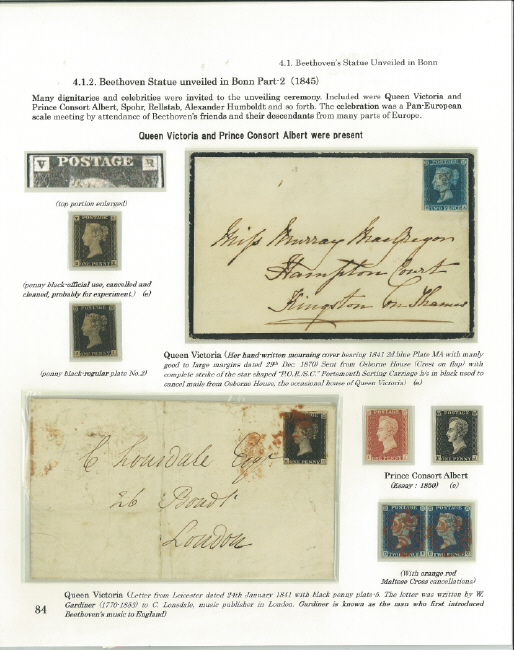 4.1. Beethoven's Statue Unveiled in Bonn
4.1.2. Beethoven Statue unveiled in Bonn Part-2 (1845)
Many dignitaries and celebrities were invited to the unveiling ceremony. Included were Queen Victoria and
Prince Consort Albert, Spohr, Rellstab, Alexander Humboldt and so forth. The celebration was a Pan-European
scale meeting by attendance of Beethoven's friends and their descendants from many parts of Europe.
Queen Victoria and Prince Consort Albert were present
V POSTAGE R
(top portion enlarged)
POSTAGE
ONE PENNY
(penny black-official use, cancelled and
cleaned, probably for experiment.) (e)
POSTAGE
ONE PENNY
(penny black-regular plate No.2)
POSTAGE
TWO PENCE
Miss Murray MacGregor
Hampton Court
Kingston on Thames
Queen Victoria (Her hand-written mourning cover bearing 1841 2d.blue Plate MA with manly
good to large margins dated 29th Dec. 1870) Sent from Osborne House (Crest on flap) with
complete strike of the star shaped "P.O.R.S.C." Portsmouth Sorting Carriage h/s in black used to
cancel mails from Osborne House, the occasional house of Queen Victoria) (e)
C Lonsdale Esqr
26 Bond St
London
ONE PENNY
POSTAGE
ONE PENNY
Prince Consort Albert
(Essay : 1850) (e)
POSTAGE
POSTAGE
(With orange red
Maltese Cross cancellations)
Queen Victoria (Letter from Leicester dated 24th January 1841 with black penny plate-5. The letter was written by W.
Gardiner (1770-1853) to C. Lonsdale, music publisher in London. Gardiner is known as the man who first introduced
Beethoven's music to England)
84